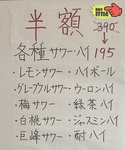 半額
390
各種サワー・ハイ 195
・レモンサワー・ハイボール
・グレープフルサワー・ウーロンハイ
・梅サワー・緑茶ハイ
・白桃サワー・ジャスミンハイ
・巨峰サワー・酎ハイ